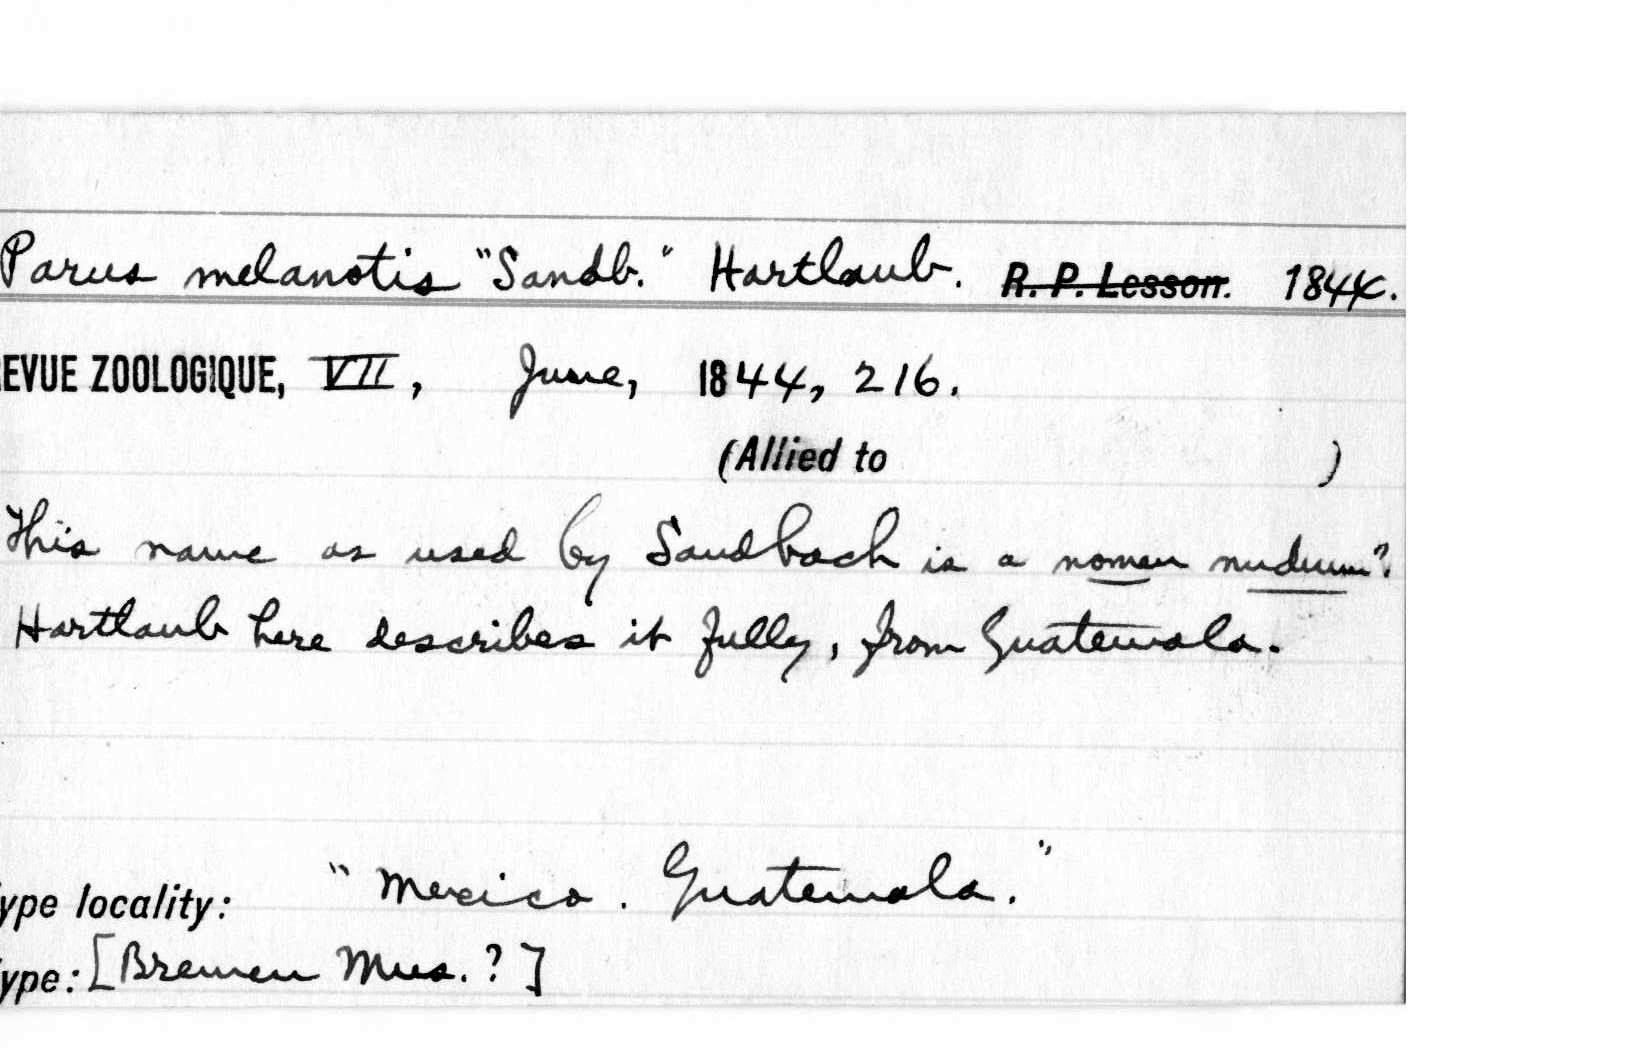 Parus melanotis "Sandb." Hartlaub. R. P. Lesson. 1844.
EVUE ZOOLOGIQUE, VII, June, 1844, 216.
(Allied to )
This name as used by Sandbach is a nomen nudum?
Hartlaub here describes it fully, from Guatemala.
ype locality: "Mexico. Guatemala."
ype: [Bremen Mus. ?]